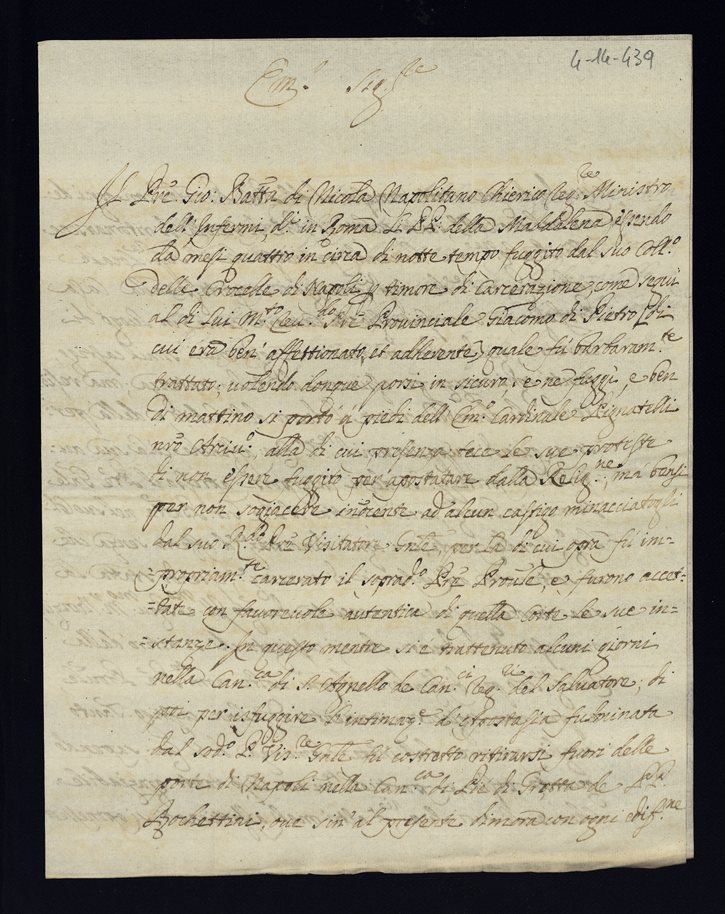 4-14-439
Em.o Sig.re
Il Prē Gio: Batta di Nicola Napolitano Chierico Reg.re Ministro
dell'Infermi, d.i in Roma li PP. della Maddalena, essendo
da mesi quattro in circa di notte tempo fuggito dal suo Coll.o
delle Crocelle di Napoli p timore di carcerazione, come seguì
al di lui M.to Rev.do Prē Provinciale Giacomo di Pietro (di
cui era ben' affettionato, et adherente) quale fù barbaram.te
trattato; volendo donque porsi in sicuro se ne fuggì, e ben
di mattino si portò a' piedi dell'Em.o Cardinale Pignatelli
nrō Arciv.o, alla di cui presenza fece le sue proteste
di non essere fuggito per apostatare dalla Relig.ne, ma bensì
per non sogiacere inocente ad alcun castigo minacciatogli
dal suo R.do Prē Visitatore Gnle, per la di cui opra fù im-
=propriam.te carcerato il soprad.o Prē Prov̄le, e furono accet-
=tate con favorevole autentica di quella Corte le sue in=
=stanze. In questo mentre si è trattenuto alcuni giorni
nella Can.ca di S. Agnello de Can.ci Reg.ri del Salvatore; di
poi per isfuggire l'intimaz.e d'Apostasia fulminata
dal sod.o P. Vis.re Gnle fù costretto ritirarsi fuori delle
porte di Napoli nella Can.ca di Piè di Grotta de PP.
Rochettini, ove sin' al presente dimora con ogni edif.ne